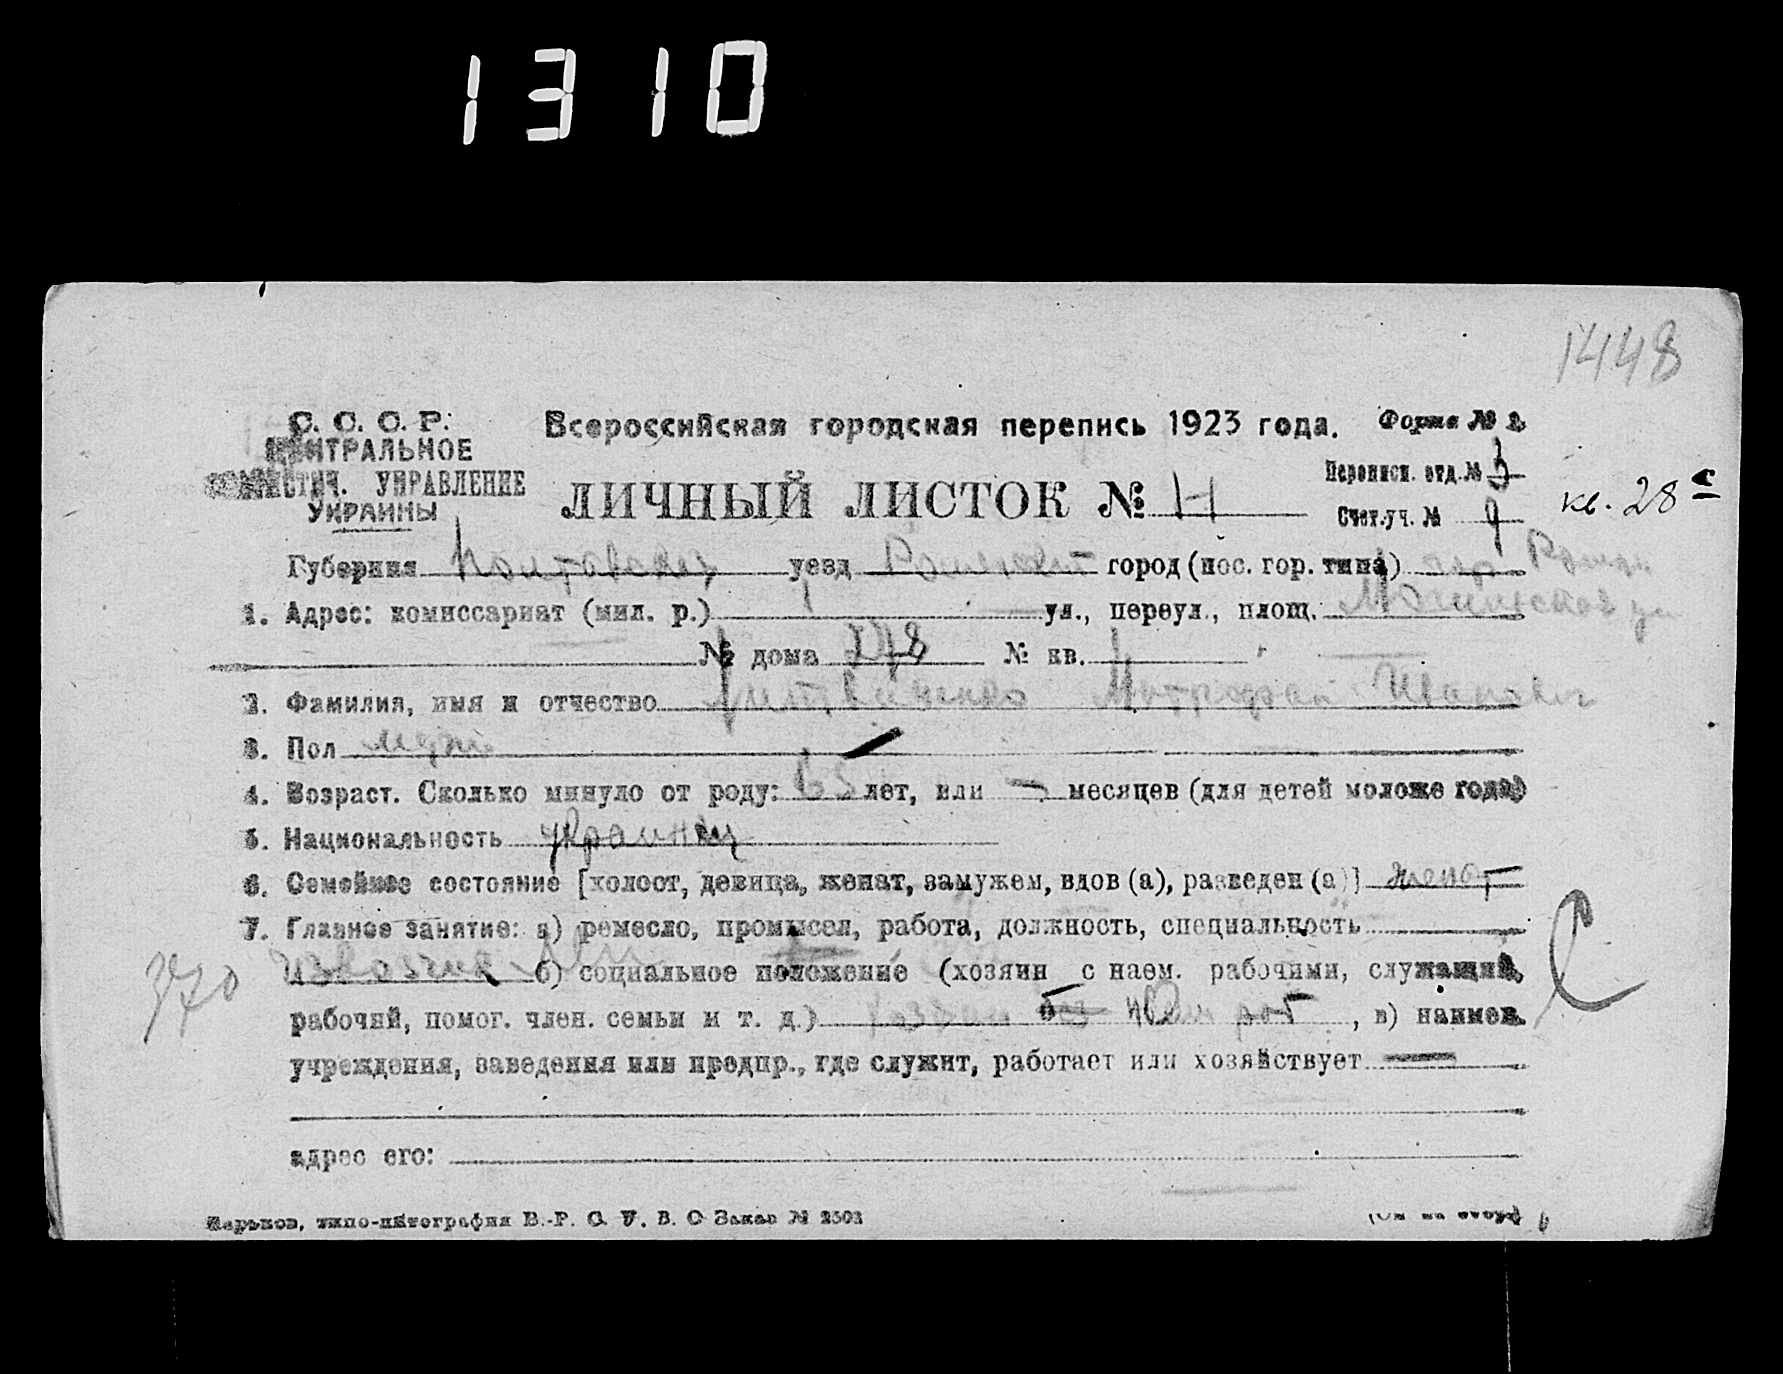 1310
1448
С. С. С. Р.
ЦЕНТРАЛЬНОЕ
СТАТИСТИЧ. УПРАВЛЕНИЕ
УКРАИНЫ
Всероссийская городская перепись 1923 года.
Форма № 2
ЛИЧНЫЙ ЛИСТОК №
Переписн. отд. № 3
Счет. уч. № 9
кв. 28 с
Губерния Полтавская уезд Роменский город (пос. гор. типа) гор Ромны
1. Адрес: комиссариат (мил. р.) ул., переул., площ.
№ дома № кв.
2. Фамилия, имя и отчество Митрофан Иванович
3. Пол муж
4. Возраст. Сколько минуло от роду: 63 лет, или — месяцев (для детей моложе года)
5. Национальность украинец
6. Семейное состояние [холост, девица, женат, замужем, вдов (а), разведен (а)] женат
7. Главное занятие: а) ремесло, промысел, работа, должность, специальность
370
б) социальное положение (хозяин с наем. рабочими, служащий,
рабочий, помог. член. семьи и т. д.) хозяин без наем раб , в) наимен.
учреждения, заведения или предпр., где служит, работает или хозяйствует —
адрес его:
Харьков, типо-литография В.-Р. С. У. В. О Заказ № 2502